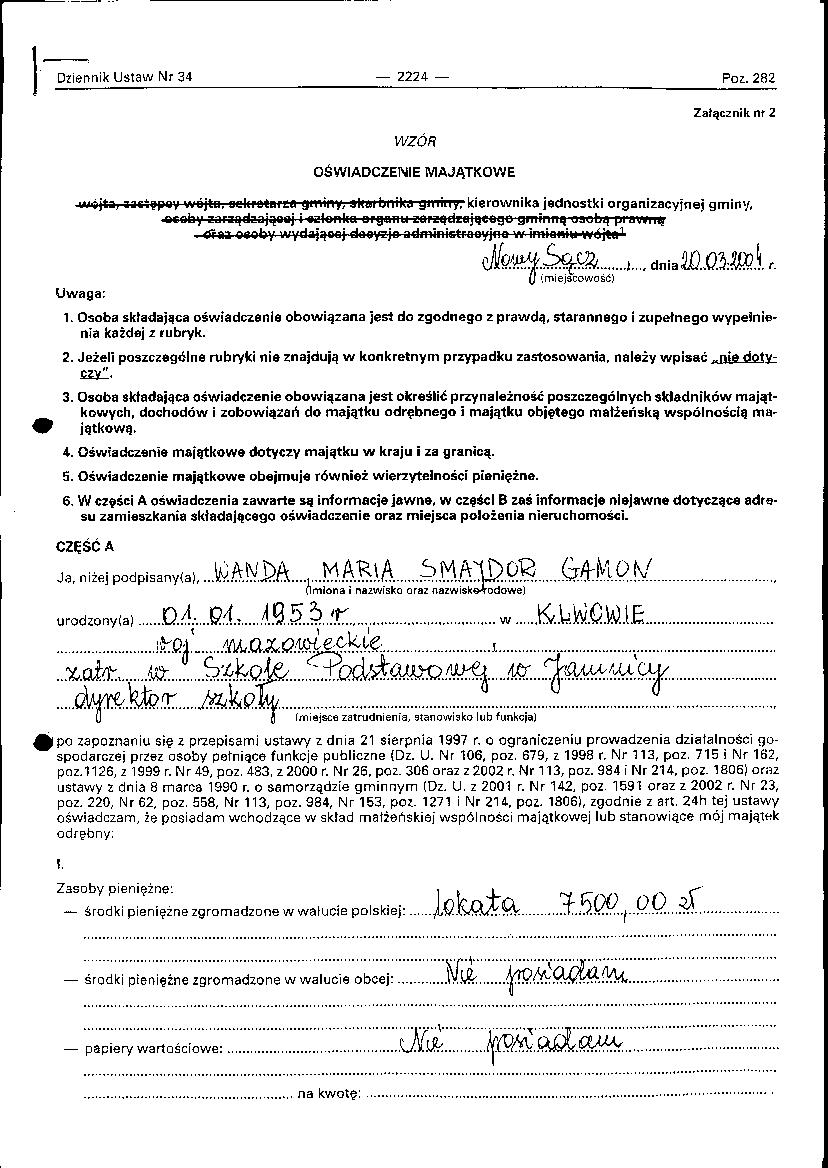 Dziennik Ustaw Nr 34 — 2224 — Poz. 282
Załącznik nr 2
WZÓR
OŚWIADCZENIE MAJĄTKOWE
wójta, zastępcy wójta, sekretarza gminy, skarbnika gminy, kierownika jednostki organizacyjnej gminy,
osoby zarządzającej i członka organu zarządzającego gminną osobą prawną
oraz osoby wydającej decyzje administracyjne w imieniu wójta¹
Nowy Sącz, dnia 20.03.2004 r.
(miejscowość)
Uwaga:
1. Osoba składająca oświadczenie obowiązana jest do zgodnego z prawdą, starannego i zupełnego wypełnie-
nia każdej z rubryk.
2. Jeżeli poszczególne rubryki nie znajdują w konkretnym przypadku zastosowania, należy wpisać „nie doty-
czy".
3. Osoba składająca oświadczenie obowiązana jest określić przynależność poszczególnych składników mająt-
kowych, dochodów i zobowiązań do majątku odrębnego i majątku objętego małżeńską wspólnością ma-
jątkową.
4. Oświadczenie majątkowe dotyczy majątku w kraju i za granicą.
5. Oświadczenie majątkowe obejmuje również wierzytelności pieniężne.
6. W części A oświadczenia zawarte są informacje jawne, w części B zaś informacje niejawne dotyczące adre-
su zamieszkania składającego oświadczenie oraz miejsca położenia nieruchomości.
CZĘŚĆ A
Ja, niżej podpisany(a), WANDA MARIA SMAJDOR GAMON,
(imiona i nazwisko oraz nazwisko rodowe)
urodzony(a) 01.01.1953 r w KLWOWIE
woj mazowieckie,
zatr. w Szkole Podstawowej w Jamnicy
dyrektor szkoły
(miejsce zatrudnienia, stanowisko lub funkcja)
po zapoznaniu się z przepisami ustawy z dnia 21 sierpnia 1997 r. o ograniczeniu prowadzenia działalności go-
spodarczej przez osoby pełniące funkcje publiczne (Dz. U. Nr 106, poz. 679, z 1998 r. Nr 113, poz. 715 i Nr 162,
poz.1126, z 1999 r. Nr 49, poz. 483, z 2000 r. Nr 26, poz. 306 oraz z 2002 r. Nr 113, poz. 984 i Nr 214, poz. 1806) oraz
ustawy z dnia 8 marca 1990 r. o samorządzie gminnym (Dz. U. z 2001 r. Nr 142, poz. 1591 oraz z 2002 r. Nr 23,
poz. 220, Nr 62, poz. 558, Nr 113, poz. 984, Nr 153, poz. 1271 i Nr 214, poz. 1806), zgodnie z art. 24h tej ustawy
oświadczam, że posiadam wchodzące w skład małżeńskiej wspólności majątkowej lub stanowiące mój majątek
odrębny:
I.
Zasoby pieniężne:
— środki pieniężne zgromadzone w walucie polskiej: lokata 7500,00 zł
— środki pieniężne zgromadzone w walucie obcej: Nie posiadam
— papiery wartościowe: Nie posiadam
na kwotę: